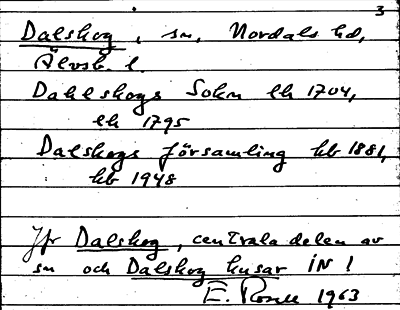 3
Dalskog, sn, Nordals hd,
Älvsb. l.
Dahlskogs Sokn lk 1704,
lk 1795
Dalskogs församling kb 1881,
kb 1948
Jfr Dalskog, centrala delen av
sn och Dalskog husar IN !
E. 1963